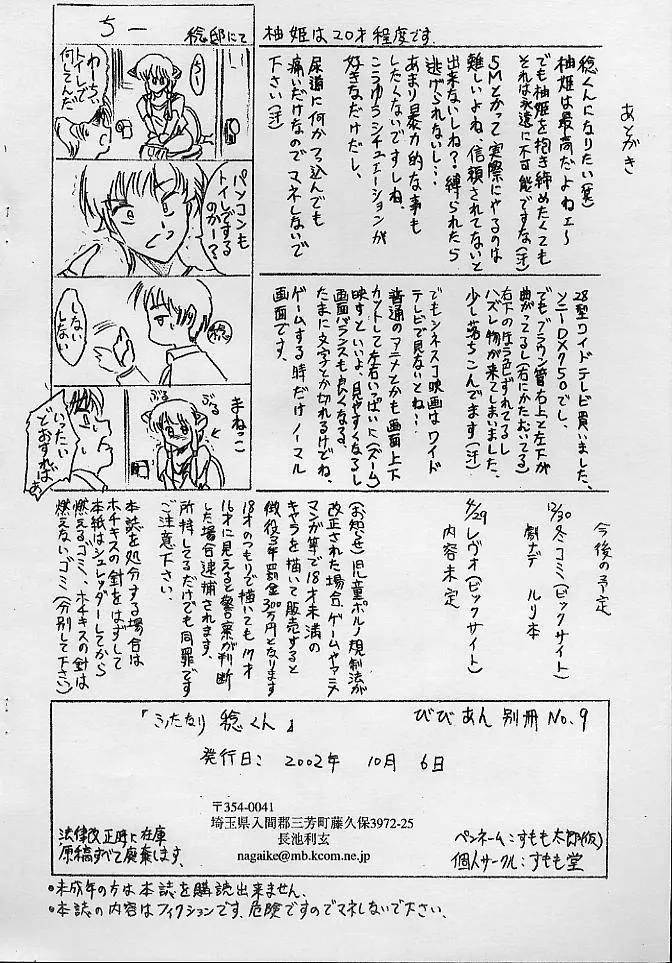 ちー
稔邸にて
柚姫は20才程度です。
わーちぃ
トイレで
何してんだ
ちぃ〜
パソコンも
トイレするの
のかー?
しないしない
稔
まねっこ
ぷる
ぷる
いったい
どおすれば
あ
あとがき
稔くんになりたい(笑)
柚姫は最高だよねェ〜
でも柚姫を抱き締めたくても
それは永遠に不可能ですな(汗)
SMとかって実際にやるのは
難しいよね、信頼されてないと
出来ないしね?縛られたら
逃げられないし…
あまり暴力的な事も
したくないですしね、
こうゆうシチュエーションが
好きなだけだし、
尿道に何かつっ込んでも
痛いだけなのでマネしないで
下さい(汗)
28型ワイドテレビ買いました、
ソニーDX750でし、
でもブラウン管右上と左下が
曲がってるし(右にかたむいてる)
右下の方ラ色ずれてるし
ハズレ物が来てしまいました、
少し落ちこんでます(汗)
でもシネスコ映画はワイド
テレビで見ないとね!!
普通のアニメとかも画面上下
カットして左右いっぱいに(ズーム)
映すといいよ、見やすくなるし
画面バランスも良くなる、
たまに文字とか切れるけどね、
ゲームする時だけノーマル
画面です。
今後の予定
12/30冬コミ(ビックサイト)
劇ナデ ルリ本
4/29レヴォ(ビックサイト)
内容未定
(お知らせ)児童ポルノ規制法が
改正された場合、ゲームやアニメ
マンガ等で18才未満の
キャラを描いて販売すると
懲役3年罰金300万円となります
18才のつもりで描いても17才
16才に見えると警察が判断
した場合逮捕されます。
所持してるだけでも同罪です
ご注意下さい。
本誌を処分する場合は
ホチキスの針をはずして
本紙はシュレッダーしてから
燃えるゴミ、ホチキスの針は
燃えないゴミ(分別して下さい)
「ふたなり 稔くん」
びびあん 別冊 No.9
発行日: 2002年 10月 6日
〒354-0041
埼玉県入間郡三芳町藤久保3972-25
長池利玄
nagaike@mb.kcom.ne.jp
法律改正時に在庫
原稿すべて廃棄します。
ペンネーム:すもも太郎(仮)
個人サークル:すもも堂
•未成年の方は本誌を購読出来ません。
•本誌の内容はフィクションです、危険ですのでマネしないで下さい。